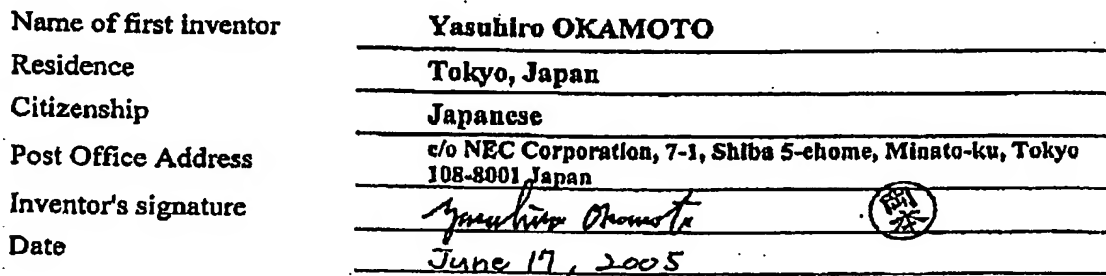 Name of first inventor Yasuhiro OKAMOTO
Residence Tokyo, Japan
Citizenship Japanese
Post Office Address c/o NEC Corporation, 7-1, Shiba 5-chome, Minato-ku, Tokyo
108-8001 Japan
Inventor's signature Yasuhiro Okamoto
Date June 17, 2005